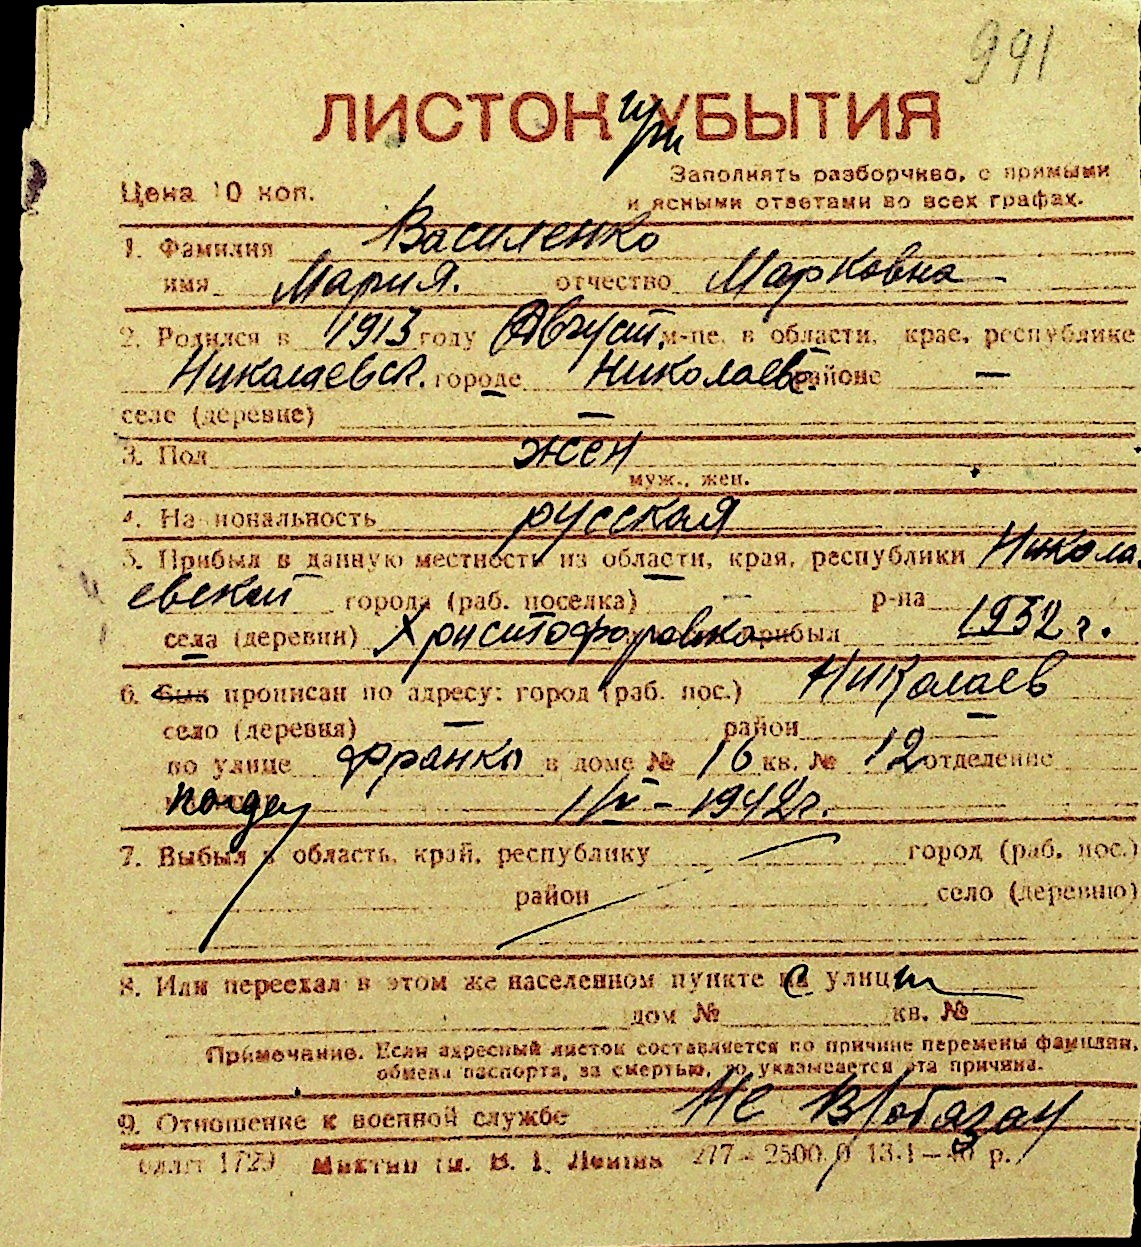 991
ЛИСТОК при УБЫТИЯ
Заполнять разборчиво, с прямыми
Цена 10 коп.
и ясными ответами во всех графах.
1. Фамилия Василенко
имя Мария. отчество Марковна
2. Родился в 1913 году Август. м-це, в области, крае, республике
Николаевск. городе Николаев районе —
селе (деревне) —
3. Пол жен
муж., жен.
4. Национальность русская
5. Прибыл в данную местность из области, края, республики Никола
евской города (раб. поселка) — р-на
села (деревни) Христофоровка прибыл 1932 г.
6. Был прописан по адресу: город (раб. пос.) Николаев
село (деревня) — район —
по улице Франко в доме № 16 кв. № 12 отделение
1/IV – 1942 г.
7. Выбыл в область, край, республику город (раб. пос.)
район село (деревню)
8. Или переехал в этом же населенном пункте с улицы
дом № кв. №
Примечание. Если адресный листок составляется по причине перемены фамилии,
обмена паспорта, за смертью, то указывается эта причина.
9. Отношение к военной службе Не в/обязан
1729 им. В. І. Леніна 277 – 2500.0 13.I – 40 р.